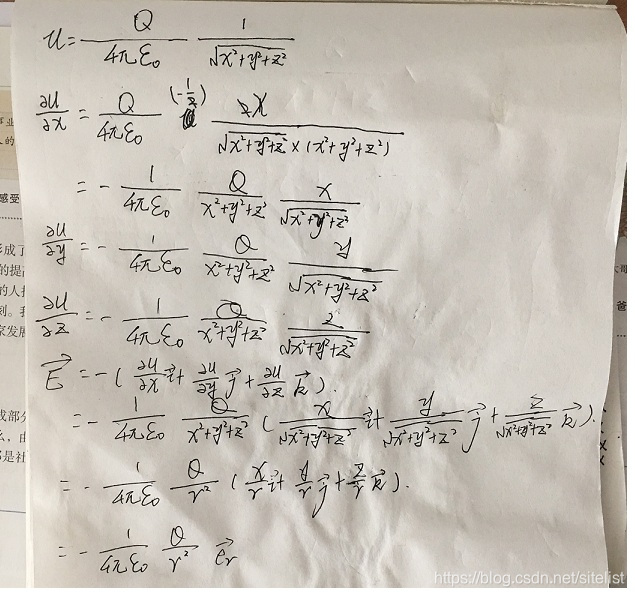 u = Q/(4πε₀) 1/√(x²+y²+z²)
∂u/∂x = Q/(4πε₀) (-1/2) 2x/(√(x²+y²+z²) × (x²+y²+z²))
= - 1/(4πε₀) Q/(x²+y²+z²) x/√(x²+y²+z²)
∂u/∂y = - 1/(4πε₀) Q/(x²+y²+z²) y/√(x²+y²+z²)
∂u/∂z = - 1/(4πε₀) Q/(x²+y²+z²) z/√(x²+y²+z²)
E⃗ = -(∂u/∂x i⃗ + ∂u/∂y j⃗ + ∂u/∂z k⃗).
= - 1/(4πε₀) Q/(x²+y²+z²) (x/√(x²+y²+z²) i⃗ + y/√(x²+y²+z²) j⃗ + z/√(x²+y²+z²) k⃗).
= - 1/(4πε₀) Q/r² (x/r i⃗ + y/r j⃗ + z/r k⃗).
= - 1/(4πε₀) Q/r² e⃗r
感受
形成了
的提高
的人
家发展
https://blog.csdn.net/sitelist